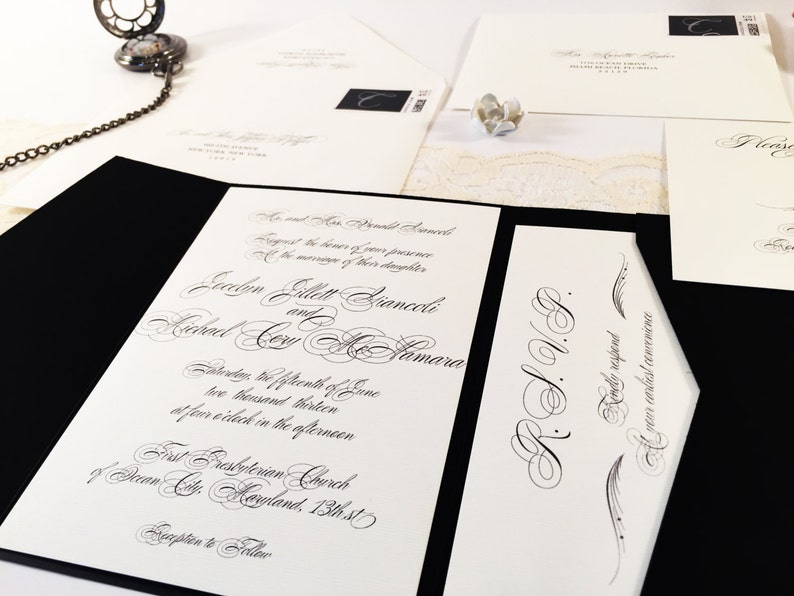 Mr. and Mrs. Donald Giancoli
Request the honor of your presence
At the marriage of their daughter
Jocelyn Jillett Giancoli
and
Michael Cory McNamara
Saturday, the fifteenth of June
two thousand thirteen
at four o'clock in the afternoon
First Presbyterian Church
of Ocean City, Maryland, 13th st
Reception to Follow
R. S. V. P.
Kindly respond
At your earliest convenience
Please
NEW YORK, NEW YORK
C
OCEAN DRIVE
MIAMI BEACH, FLORIDA
33139
C